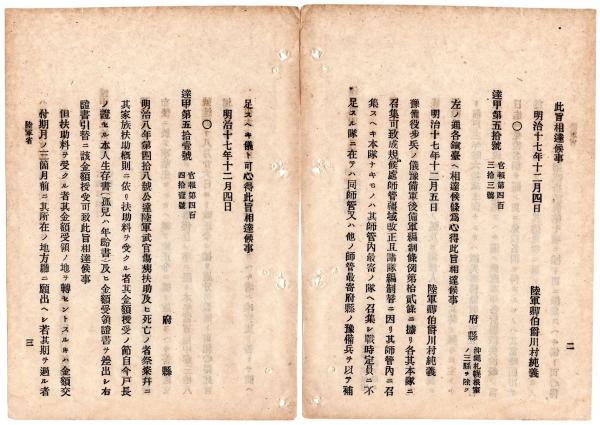 二
此旨相達候事
明治十七年十二月四日
陸軍卿伯爵川村純義
〇
達甲第五拾號 官報第四百三拾三號
府縣 沖繩札幌根室ノ三縣ヲ除ク
左ノ通各鎭臺ヘ相達候條爲心得此旨相達候事
明治十七年十二月五日
陸軍卿伯爵川村純義
豫備役歩兵ノ儀豫備軍後備軍編制條例第拾貳條ニ據リ各其本隊ニ
召集可致成規候處師管領域改正且諸隊編制替ニ因リ其師管內ニ召
集スヘキ本隊ナキモノハ其師管內最寄ノ隊ヘ召集シ戰時定員ニ不
足スル隊ニ在テハ同師管又ハ他ノ師管最寄府縣ノ豫備兵ヲ以テ補
足スヘキ儀ト可心得此旨相達候事
明治十七年十二月四日
〇
達甲第五拾壹號 官報第四百四拾壹號
府縣
明治八年第四拾八號公達陸軍武官傷痍扶助及ヒ死亡ノ者祭粢幷ニ
其家族扶助槪則ニ依リ扶助料ヲ受クル者其金額授受ノ節自今戸長
ノ證セル本人生存書(孤兒ハ年齡書)及ヒ金額受領證書ヲ差出シ右
證書引替ニ該金額授受可致此旨相達候事
但扶助料ヲ受クル者其金額受領ノ地ヲ轉セントスルキハ金額交
付期月ノ三箇月前ニ其所在ノ地方廳ニ願出ヘシ若其期ヲ過ル者
陸軍省
三